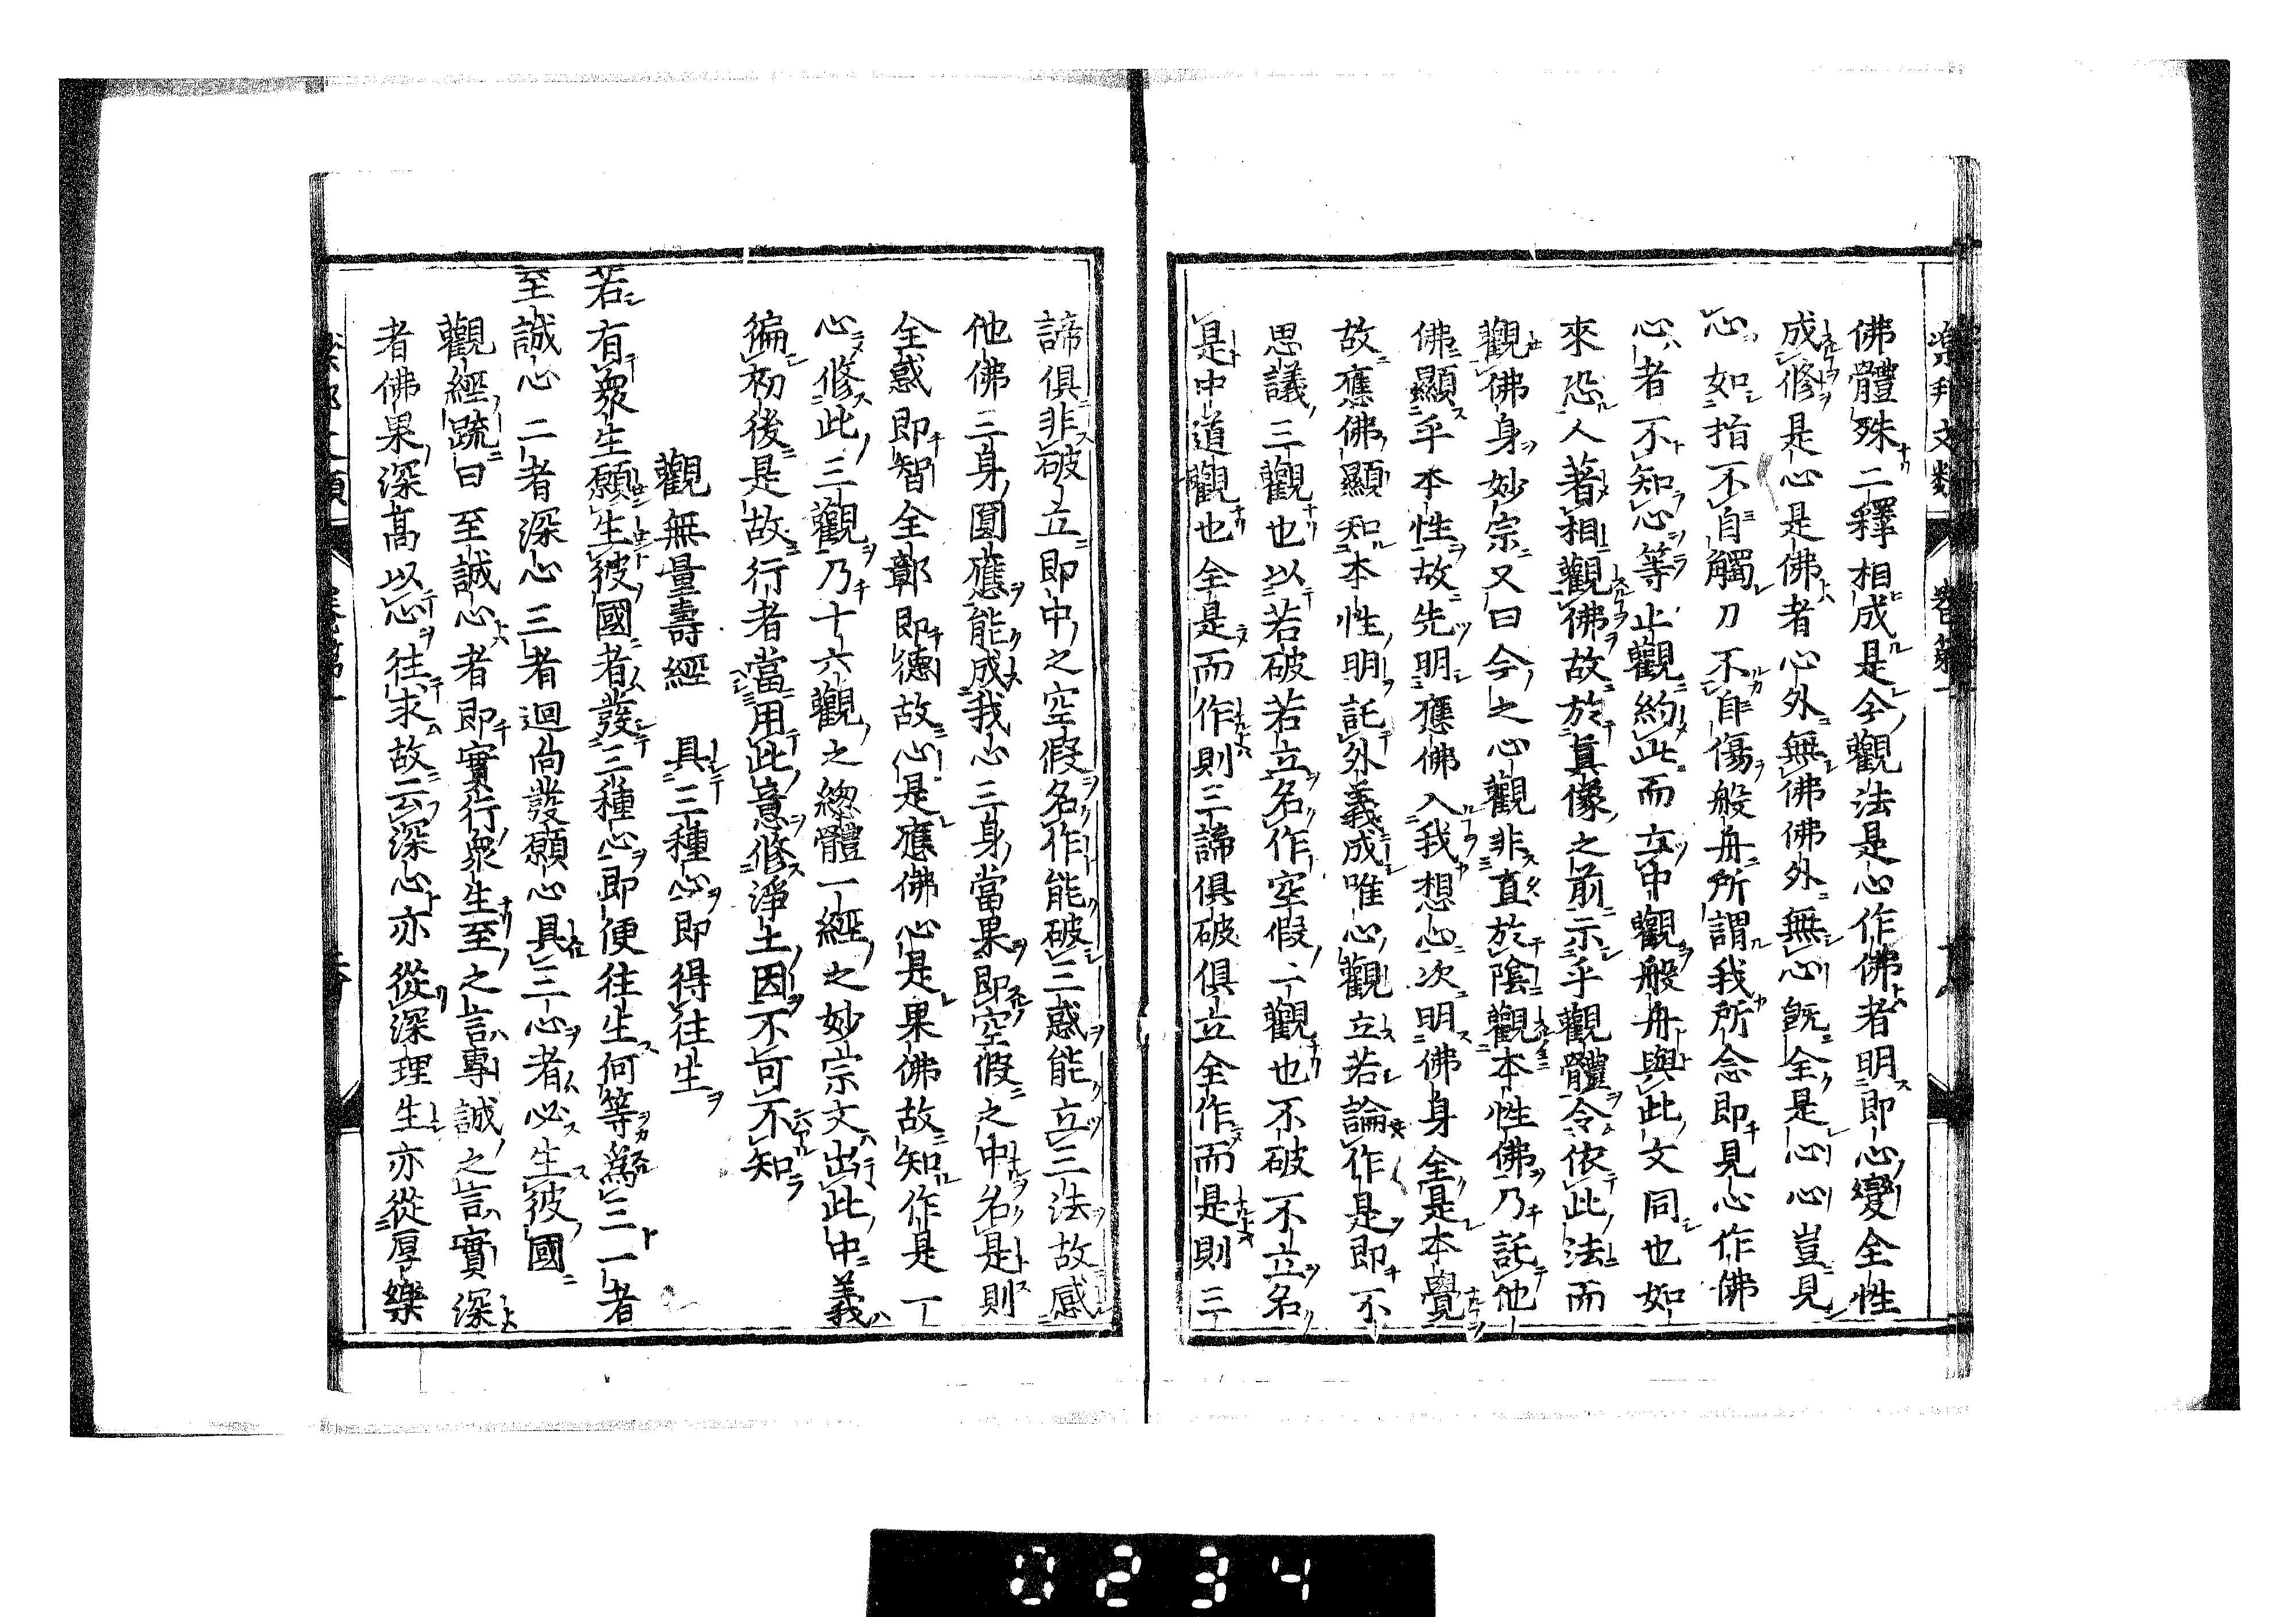 佛體殊二釋相成是今觀法是心作佛者明即心變全性
成修是心是佛者心外無佛佛外無心既全是心心豈見
心如指不自觸刀不自傷般舟所謂我所念即見心作佛
心者不知心等止觀約此而立中觀般舟與此文同也如
來恐人著相觀佛故於真像之前示乎觀體令依此法而
觀佛身妙宗又曰今之心觀非直於陰觀本性佛乃託他
佛顯乎本性故先明應佛入我想心次明佛身全是本覺
故應佛顯知本性明託外義成唯心觀立若論作是即不
思議三觀也以若破若立名作空假二觀也不破不立名
是中道觀也全是而作則三諦俱破俱立全作而是則三
諦俱非破立即中之空假名作能破三惑能立三法故感
他佛三身圓應能成我心三身當果即空假之中名是則
全惑即智全鄣即德故心是應佛心是果佛故知作是一
心修此三觀乃十六觀之總體一經之妙宗文出此中義
徧初後是故行者當用此意修淨土因不可不知
觀無量壽經 具三種心即得往生
若有衆生願生彼國者發三種心即便往生何等爲三一者
至誠心二者深心三者迴向發願心具三心者必生彼國
觀經疏曰至誠心者即實行衆生至之言專誠之言實深
者佛果深高以心往求故云深心亦從深理生亦從厚樂